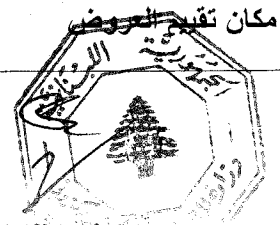 مكان تقييم العروض
الجمهورية اللبنانية